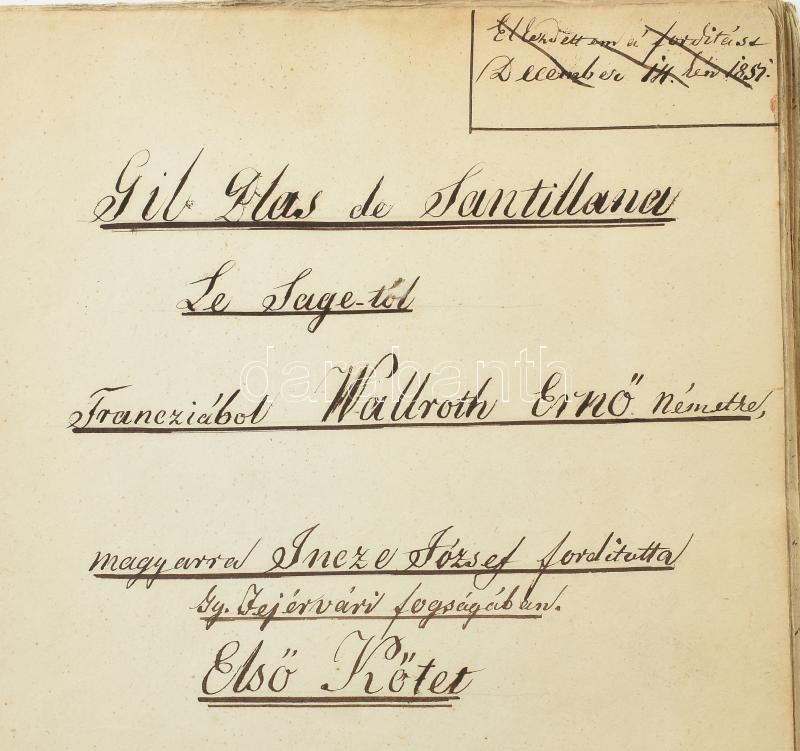 Elkezdettem á fordítást
December 14. kén 1851.
Gil Blas de Santillana
Le Sage-tól
darabanth
Francziából Wallroth Ernő németre,
magyarra Incze József fordította
Gy. Fejérvári fogságában.
Első Kötet